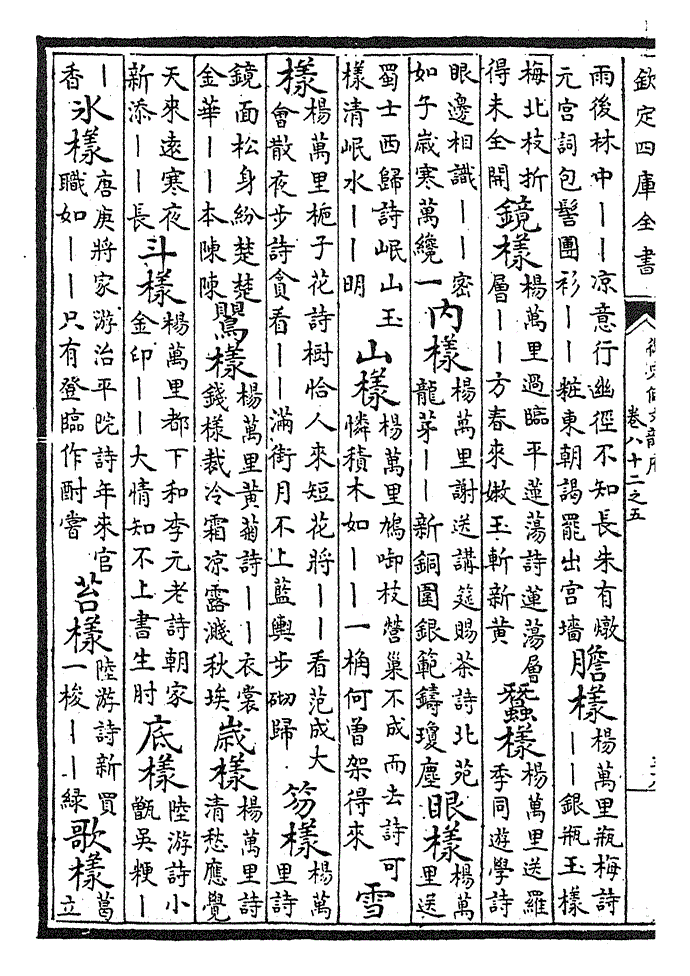 欽定四庫全書
卷八十二之五
雨後林中丨丨凉意行幽徑不知長朱有燉
元宫詞包髻團衫丨丨粧東朝謁罷出宫墻
膽樣
楊萬里瓶梅詩
丨丨銀瓶玉樣
梅北枝折
得未全開
鏡樣
楊萬里過臨平蓮蕩詩蓮蕩層
層丨丨方春來嫩玉斬新黄
蠶樣
楊萬里送羅
季同遊學詩
眼邊相識丨丨密
如子歲寒萬纔一
內樣
楊萬里謝送講筵賜茶詩北苑
龍芽丨丨新銅圍銀範鑄瓊塵
眼樣
楊萬
里送
蜀士西歸詩岷山玉
樣清岷水丨丨明
山樣
楊萬里鳩啣枝營巢不成而去詩可
憐積木如丨丨一桷何曾架得來
雪
樣
楊萬里梔子花詩樹恰人來短花將丨丨看范成大
會散夜步詩貪看丨丨滿街月不上藍輿步砌歸
笏樣
楊萬
里詩
鏡面松身紛楚楚
金華丨丨本陳陳
鸎樣
楊萬里黄菊詩丨丨衣裳
錢樣裁冷霜凉露濺秋埃
歲樣
楊萬里詩
清愁應覺
天來逺寒夜
新添丨丨長
斗樣
楊萬里都下和李元老詩朝家
金印丨丨大情知不上書生肘
底樣
陸游詩小
甑吳粳丨
丨
香
氷樣
唐庚將家游治平院詩年來官
職如丨丨只有登臨作酎嘗
苔樣
陸游詩新買
一梭丨丨緑
歌樣
葛
立